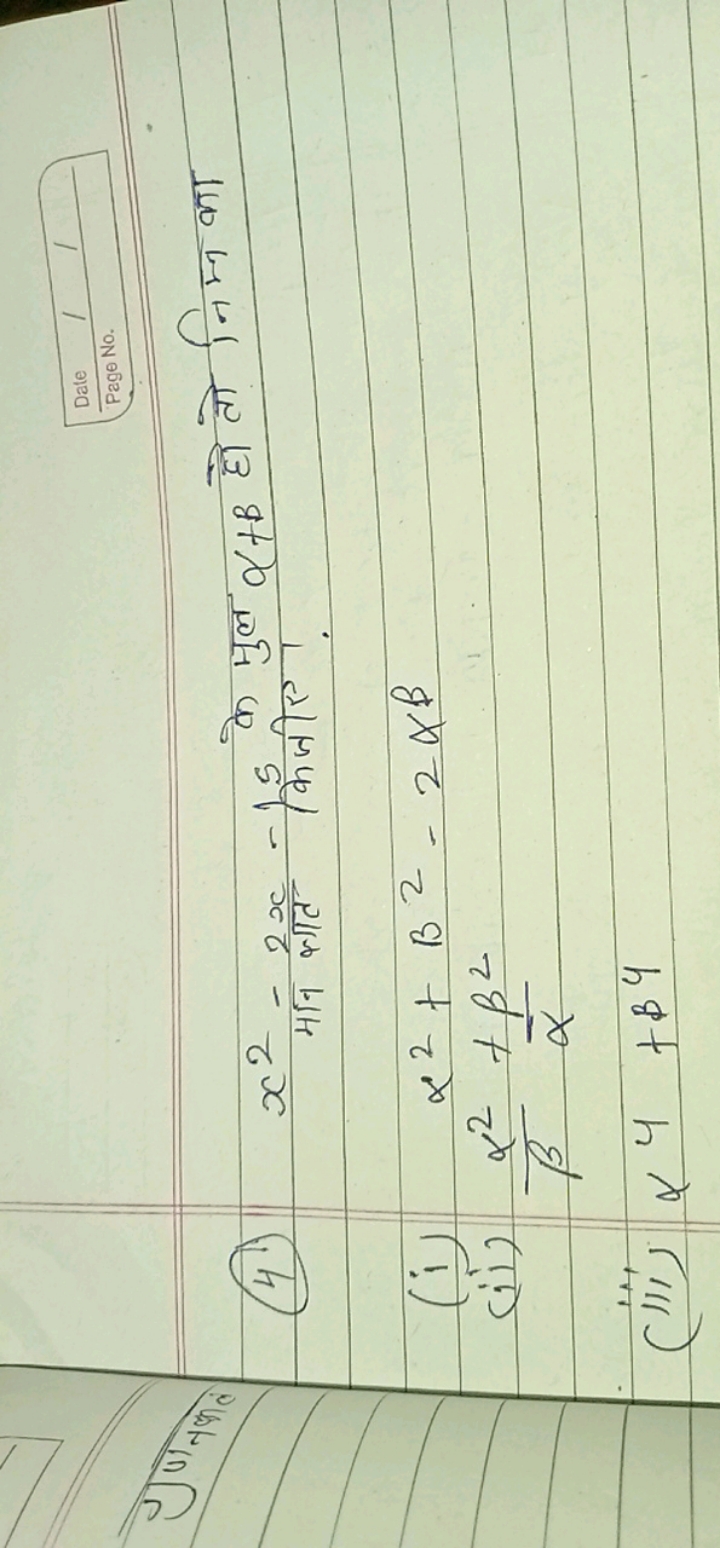 Date / /
Page No.
④ x² - 2x - 15 के मुल α+β हो तो निम्न का
मान ज्ञात कीजीए।
(i) α² + β² - 2αβ
(ii) α²/β + β²/α
(iii) α⁴ + β⁴